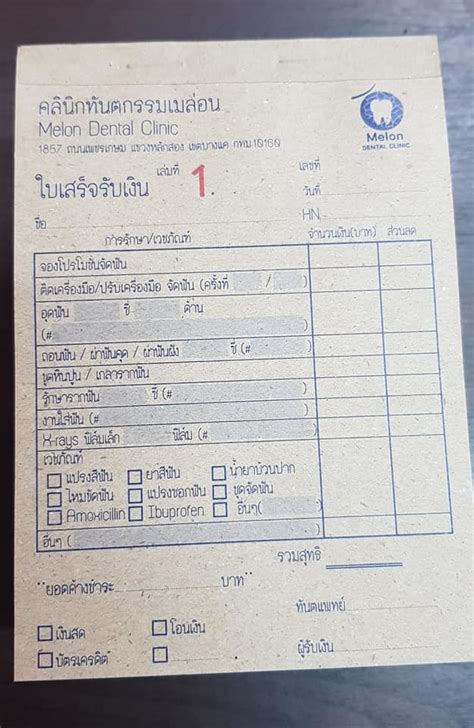 คลินิกทันตกรรมเมล่อน
Melon Dental Clinic
1857 ถนนเพชรเกษม แขวงหลักสอง เขตบางแค กทม.10160
Melon
DENTAL CLINIC
ใบเสร็จรับเงิน เล่มที่ 1. เลขที่
วันที่
ชื่อ HN
การรักษา/เวชภัณฑ์ จำนวนเงิน(บาท) ส่วนลด
จองโปรโมชั่นจัดฟัน
ติดเครื่องมือ/ปรับเครื่องมือ จัดฟัน (ครั้งที่ / )
อุดฟัน ซี่ ด้าน
(#
ถอนฟัน / ผ่าฟันคุด / ผ่าฟันฝัง ซี่ (#
ขูดหินปูน / เกลารากฟัน
รักษารากฟัน ซี่ (#
งานใส่ฟัน (#
X-rays ฟิล์มเล็ก ฟิล์ม (#
เวชภัณฑ์
แปรงสีฟัน ยาสีฟัน น้ำยาบ้วนปาก
ไหมขัดฟัน แปรงซอกฟัน ชุดจัดฟัน
Amoxicillin Ibuprofen อื่นๆ(
อื่นๆ(
รวมสุทธิ
"ยอดค้างชำระ บาท"
ทันตแพทย์
เงินสด โอนเงิน
บัตรเครดิต ผู้รับเงิน